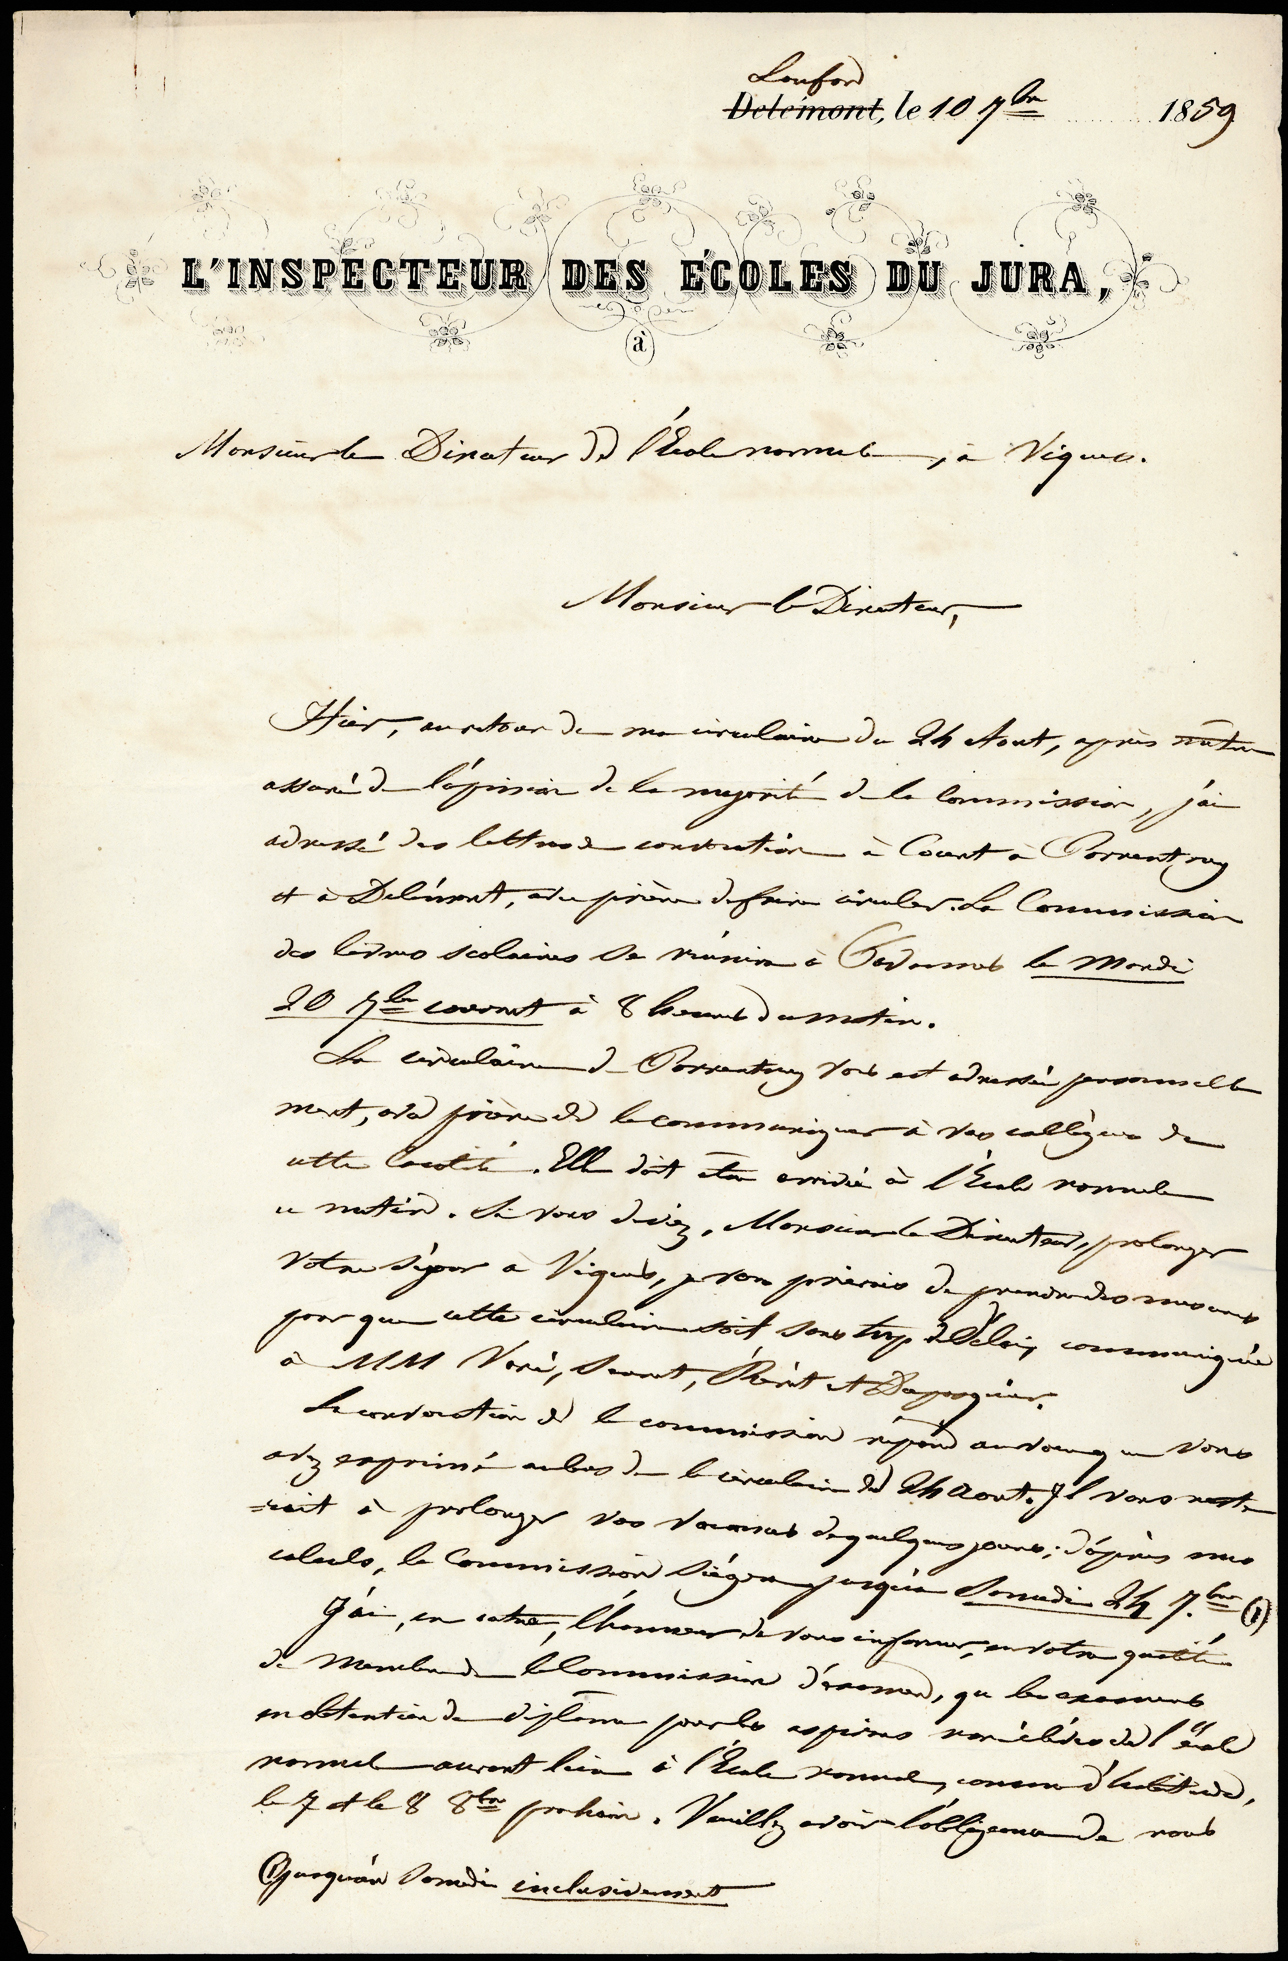 Laufon
Delémont, le 10 7bre 1859
L'INSPECTEUR DES ÉCOLES DU JURA,
à
Monsieur le Directeur de l'École normale, à Vigues.
Monsieur le Directeur,
Hier, au retour de ma circulaire du 24 Aout, après m'être
assuré de l'opinion de la majorité de la Commission, j'ai
adressé des lettres de convocation à Court à Porrentruy
et à Delémont, avec prière de faire circuler. La Commission
des livres scolaires se réunira à Tavannes le Mardi
20 7bre courant à 8 heures du matin.
La circulaire de Porrentruy vous est adressée personnelle
ment, avec prière de la communiquer à vos collègues de
cette localité. Elle doit être arrivée à l'École normale
ce matin. Si vous deviez, Monsieur le Directeur, prolonger
votre séjour à Vigues, je vous prierais de prendre des mesures
pour que cette circulaire soit sans trop de délai, communiquée
à MM Varé, Séuret, Périt et Dupasquier.
La convocation de la commission répond au voeu que vous
avez exprimé au bas de la circulaire du 24 Aout. Il vous reste
=rait à prolonger vos vacances de quelques jours; d'après mes
calculs, la Commission siégera jusqu'au Samedi 24 7.bre (1)
J'ai, en outre, l'honneur de vous informer, en votre qualité
de Membre de la Commission d'examen, que les examens
en obtention du diplôme pour les aspirans non élèves de l'école
normale auront lieu à l'École normale, comme d'habitude,
le 7 et le 8 8bre prochain. Veuillez avoir l'obligeance de nous
(1) jusqu'au Samedi inclusivement